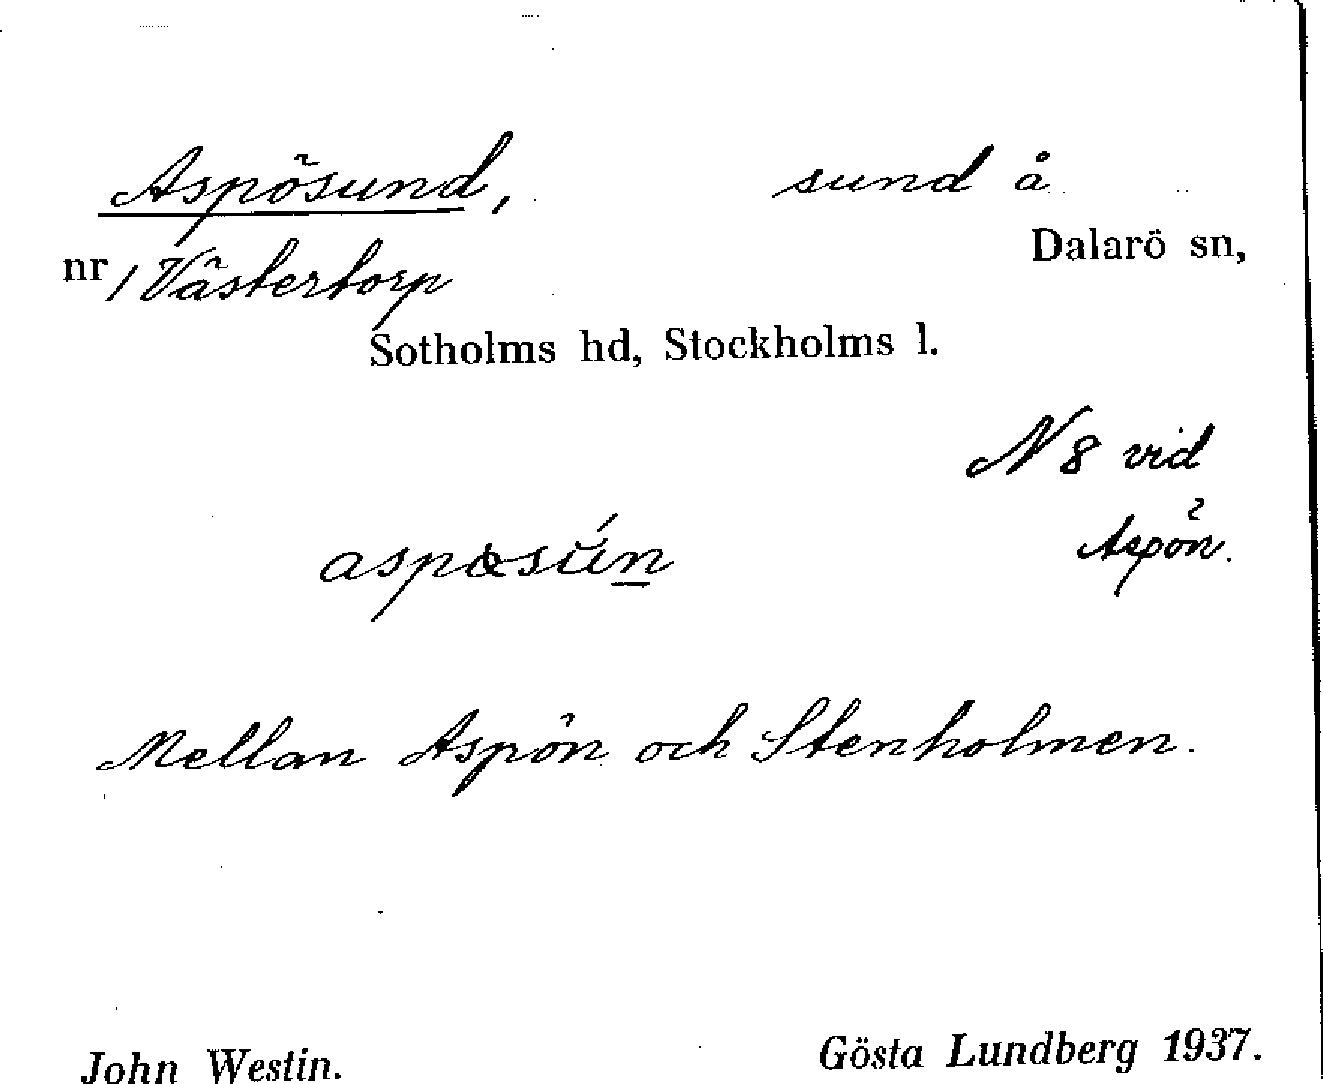 Aspösund, sund å
Dalarö sn,
nr 1 Västertorp
Sotholms hd, Stockholms l.
N 8 vid
Aspön.
Mellan Aspön och Stenholmen.
John Westin. Gösta Lundberg 1937.